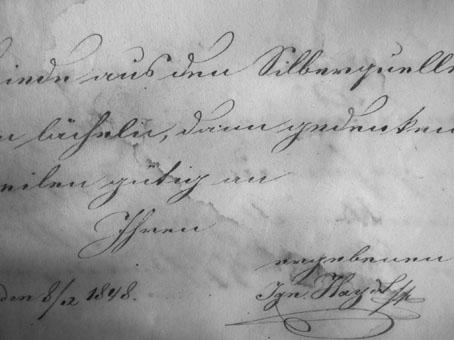 iede aus den Silberquelle
n lächeln, dann gedenken
eilen gütig an
Ihren
ergebenen
den 8/12 1848.
Ign.